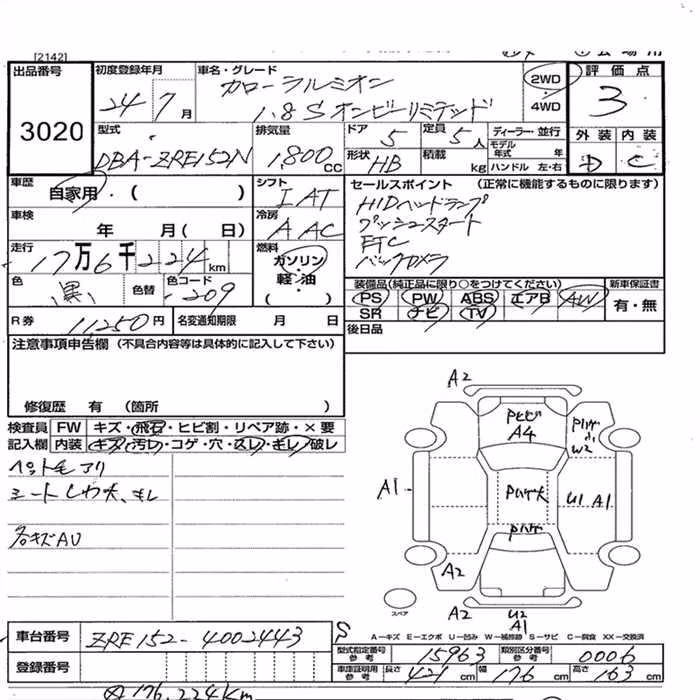 [2142]
出品番号 3020
初度登録年月 24 7月
車名・グレード カローラルミオン
1.8S オンビーリミテッド
2WD ・ 4WD
評価点 3
外装 D 内装 C
型式 DBA-ZRE152N
排気量 1,800 CC
ドア 5 定員 5人
形状 HB 積載 kg
ディーラー・並行
モデル年式 年
ハンドル 左・右
車歴 自家用・( )
シフト IAT
セールスポイント (正常に機能するものに限ります)
HIDヘッドランプ
プッシュスタート
ETC
バックカメラ
車検 年 月( 日)
冷房 AAC
走行 17万6千224km
燃料 ガソリン・軽油・
色 黒 色替 色コード 209
装備品(純正品に限り○をつけてください) 新車保証書
PS PW ABS エアB AW 有・無
SR ナビ TV
R券 11,250円 名変通知期限 月 日
後日品
注意事項申告欄 (不具合内容等は具体的に記入して下さい)
修復歴 有 (箇所 )
検査員 FW キズ・飛石・ヒビ割・リペア跡・×要
記入欄 内装 キズ・汚レ・コゲ・穴・スレ・キレ・破レ
ペット毛アリ
シートシワ大、キレ
各キズAU
A2
Pヒビ
A4
Pハゲ小
W2
A1
Pハゲ大
U1 A1
Pハゲ
A2
A2
U2
A1
スペア
A-キズ E-エクボ U-凹み W-補修跡 S-サビ C-腐食 XX-交換済
車台番号 ZRE152-4002443 S
登録番号
型式指定番号 参考 15963 類別区分番号 参考 0006
車庫証明用 参考 長さ 421cm 幅 176cm 高さ 163cm
176,224Km